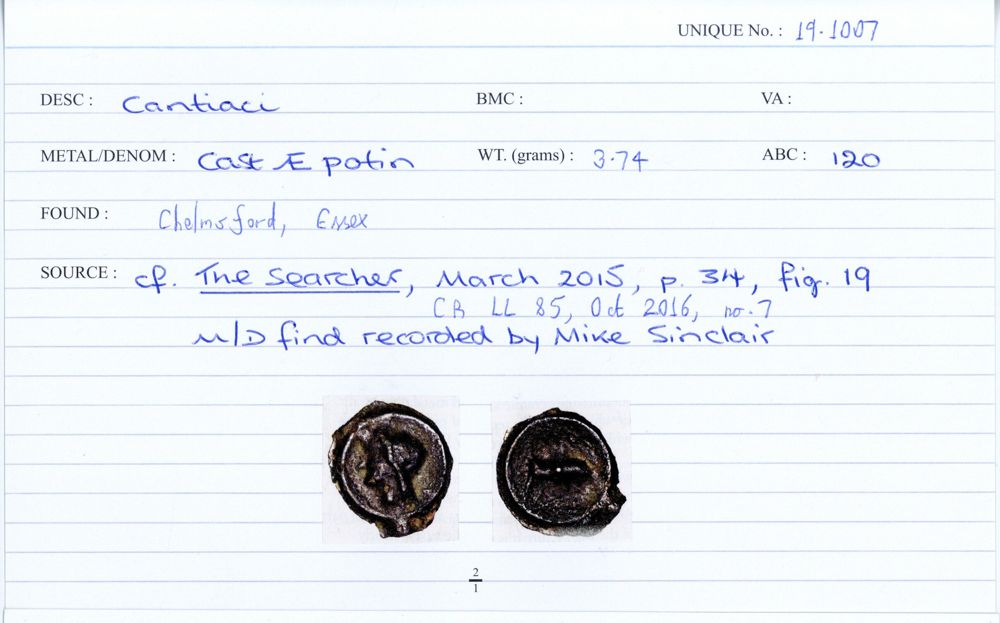 UNIQUE No. : 19-1007
DESC : Cantiaci BMC : VA :
METAL/DENOM : Cast Æ potin WT. (grams) : 3.74 ABC : 120
FOUND : Chelmsford, Essex
SOURCE : cf. The Searcher, March 2015, p. 34, fig. 19
CR LL 85, Oct 2016, no. 7
M/D find recorded by Mike Sinclair
2
1